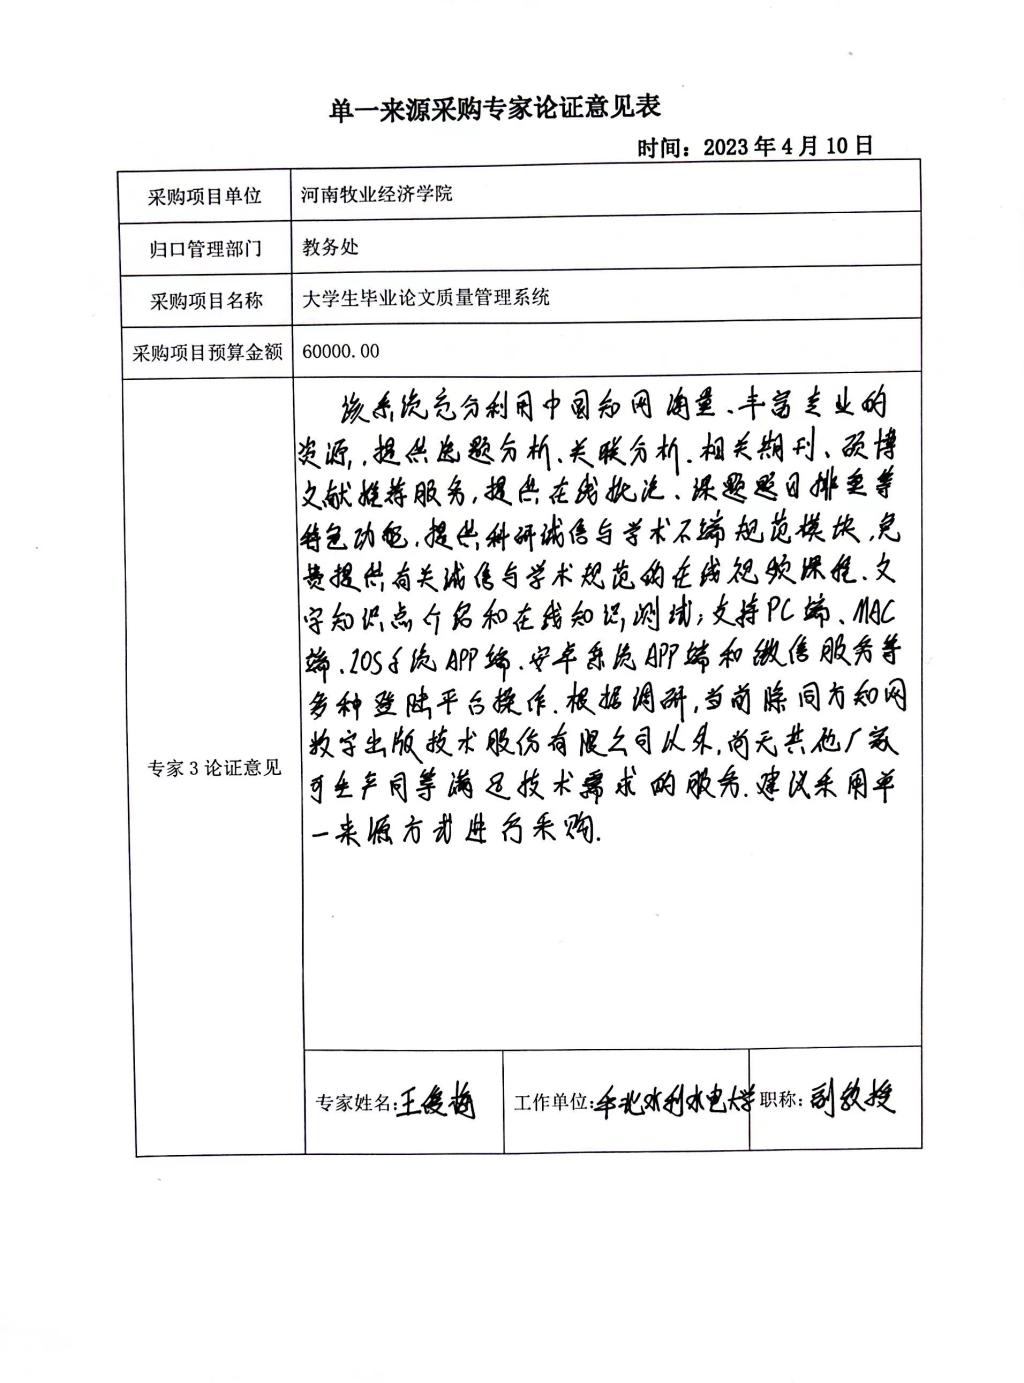 单一来源采购专家论证意见表
时间：2023年4月10日
采购项目单位 河南牧业经济学院
归口管理部门 教务处
采购项目名称 大学生毕业论文质量管理系统
采购项目预算金额 60000.00
专家3论证意见
该系统充分利用中国知网海量、丰富专业的
资源，提供选题分析、关联分析、相关期刊、硕博
文献推荐服务，提供在线批注、课题题目排重等
特色功能，提供科研诚信与学术不端规范模块，免
费提供有关诚信与学术规范的在线视频课程、文
字知识点介绍和在线知识测试；支持PC端、MAC
端、IOS系统APP端、安卓系统APP端和微信服务等
多种登陆平台操作．根据调研，当前除同方知网
数字出版技术股份有限公司以外，尚无其他厂家
可生产同等满足技术需求的服务．建议采用单
一来源方式进行采购．
专家姓名：王俊梅 工作单位：华北水利水电大学 职称：副教授